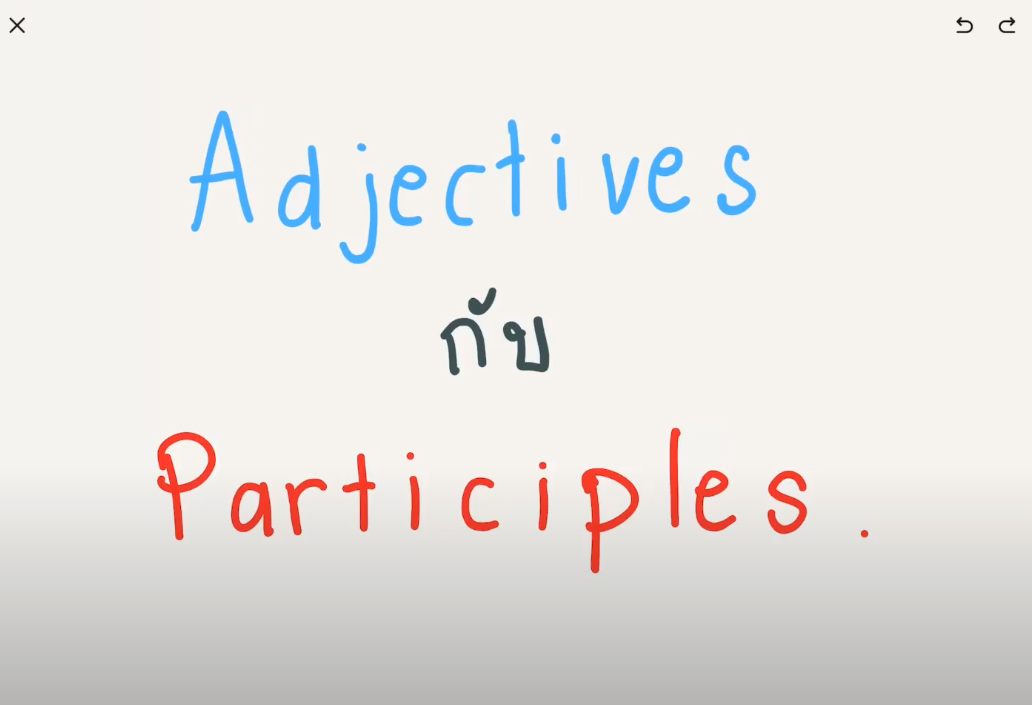 Adjectives
กับ
Participles.